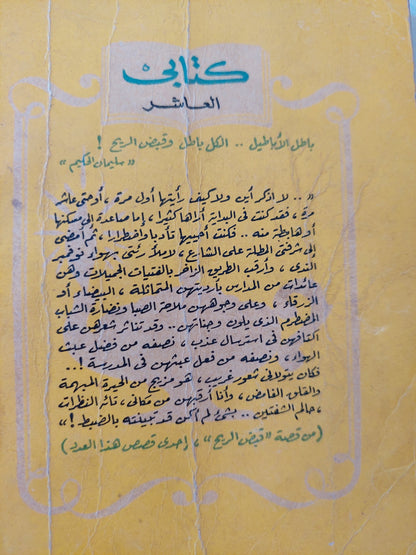 كتابي
العاشر
باطل الأباطيل .. الكل باطل وقبض الريح !
« سليمان الحكيم »
« .. لا أذكر أين ولا كيف رأيتها أول مرة ، أو حتى عاشر
مرة ، فقد كنت في البداية أراها كثيرا ، إما صاعدة إلى مسكنها
أو هابطة منه .. فكنت أحييها تأدبا واضطرارا ، ثم أمضي
إلى شرفتي المطلة على الشارع ، لأملأ رئتي بهواء نوفمبر
الندي ، وأرقب الطريق الزاخر بالفتيات الجميلات وهن
عائدات من المدارس بأرديتهن المتماثلة ، البيضاء أو
الزرقاء ، وعلى وجوههن ملاحة الصبا ونضارة الشباب
المضطرم الذي يلون وجناتهن .. وقد تناثر شعرهن على
أكتافهن في استرسال عذب ، نصفه من فضل عبث
الهواء ، ونصفه من فعل عبثهن في المدرسة !..
فكان يتولاني شعور غريب ، هو مزيج من الحيرة المبهمة
والقلق الغامض ، وأنا أرقبهن من مكاني ، تائه النظرات
، حالم الشفتين .. بشيء لم أكن قد تبينته بالضبط ! »
(من قصة « قبض الريح » ، إحدى قصص هذا العدد)